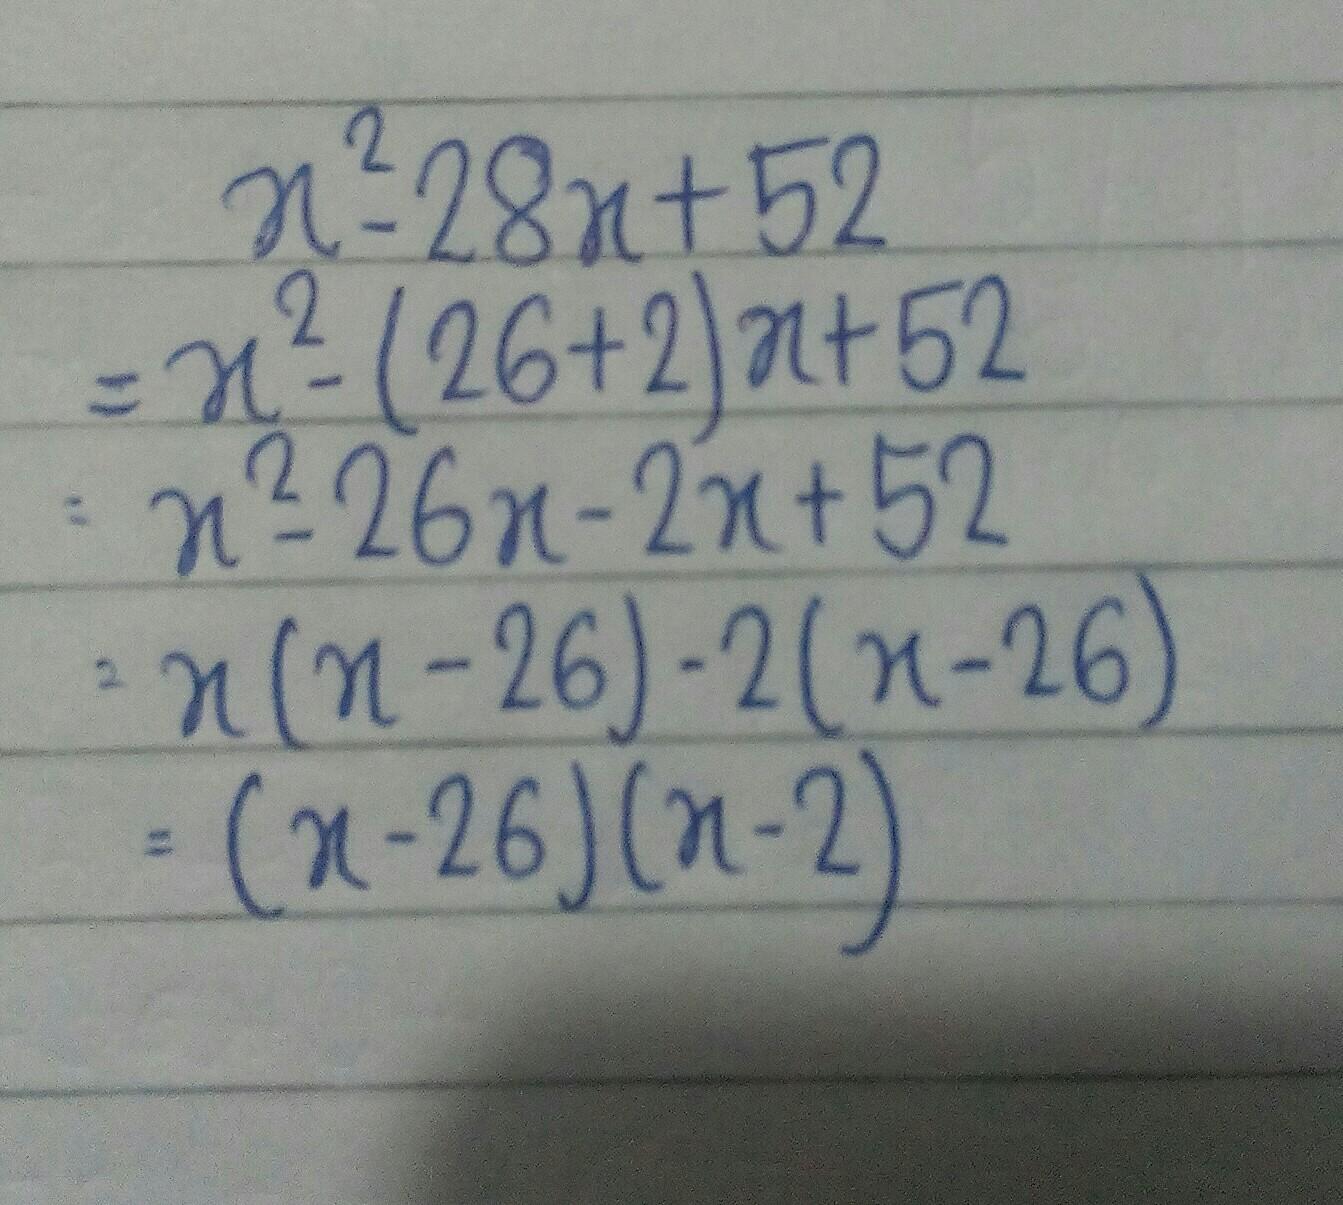 x²-28x+52
=x²-(26+2)x+52
=x²-26x-2x+52
=x(x-26)-2(x-26)
=(x-26)(x-2)